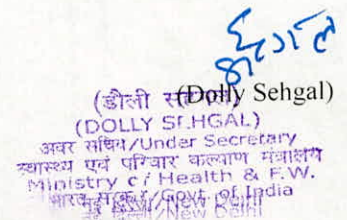 सहगल
(डौली सहगल) (Dolly Sehgal)
(DOLLY SEHGAL)
अवर सचिव/Under Secretary
स्वास्थ्य एवं परिवार कल्याण मंत्रालय
Ministry of Health & F.W.
भारत सरकार/Govt. of India
नई दिल्ली/New Delhi